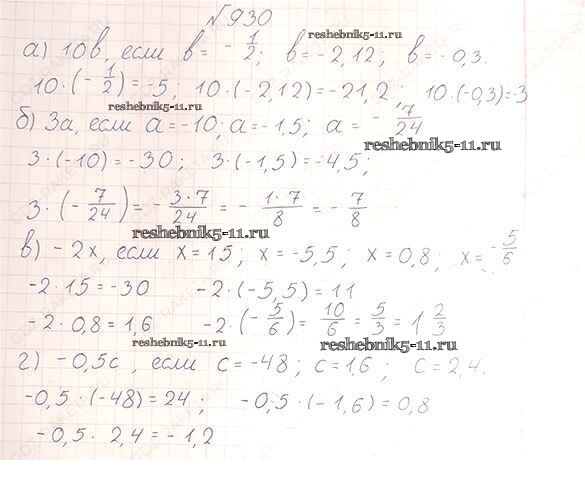 №930
reshebnik5-11.ru
а) 10в, если в = -1/2; в = -2,12; в = -0,3.
10·(-1/2) = -5; 10·(-2,12) = -21,2; 10·(-0,3) = -3
reshebnik5-11.ru
б) 3а, если а = -10; а = -1,5; а = -7/24
reshebnik5-11.ru
3·(-10) = -30; 3·(-1,5) = -4,5;
3·(-7/24) = -3·7/24 = -1·7/8 = -7/8
reshebnik5-11.ru
в) -2х, если х = 15; х = -5,5; х = 0,8; х = -5/6
-2·15 = -30 -2·(-5,5) = 11
-2·0,8 = 1,6 -2·(-5/6) = 10/6 = 5/3 = 1 2/3
reshebnik5-11.ru reshebnik5-11.ru
г) -0,5с, если с = -48; с = 1,6; с = 2,4.
-0,5·(-48) = 24; -0,5·(-1,6) = 0,8
-0,5·2,4 = -1,2